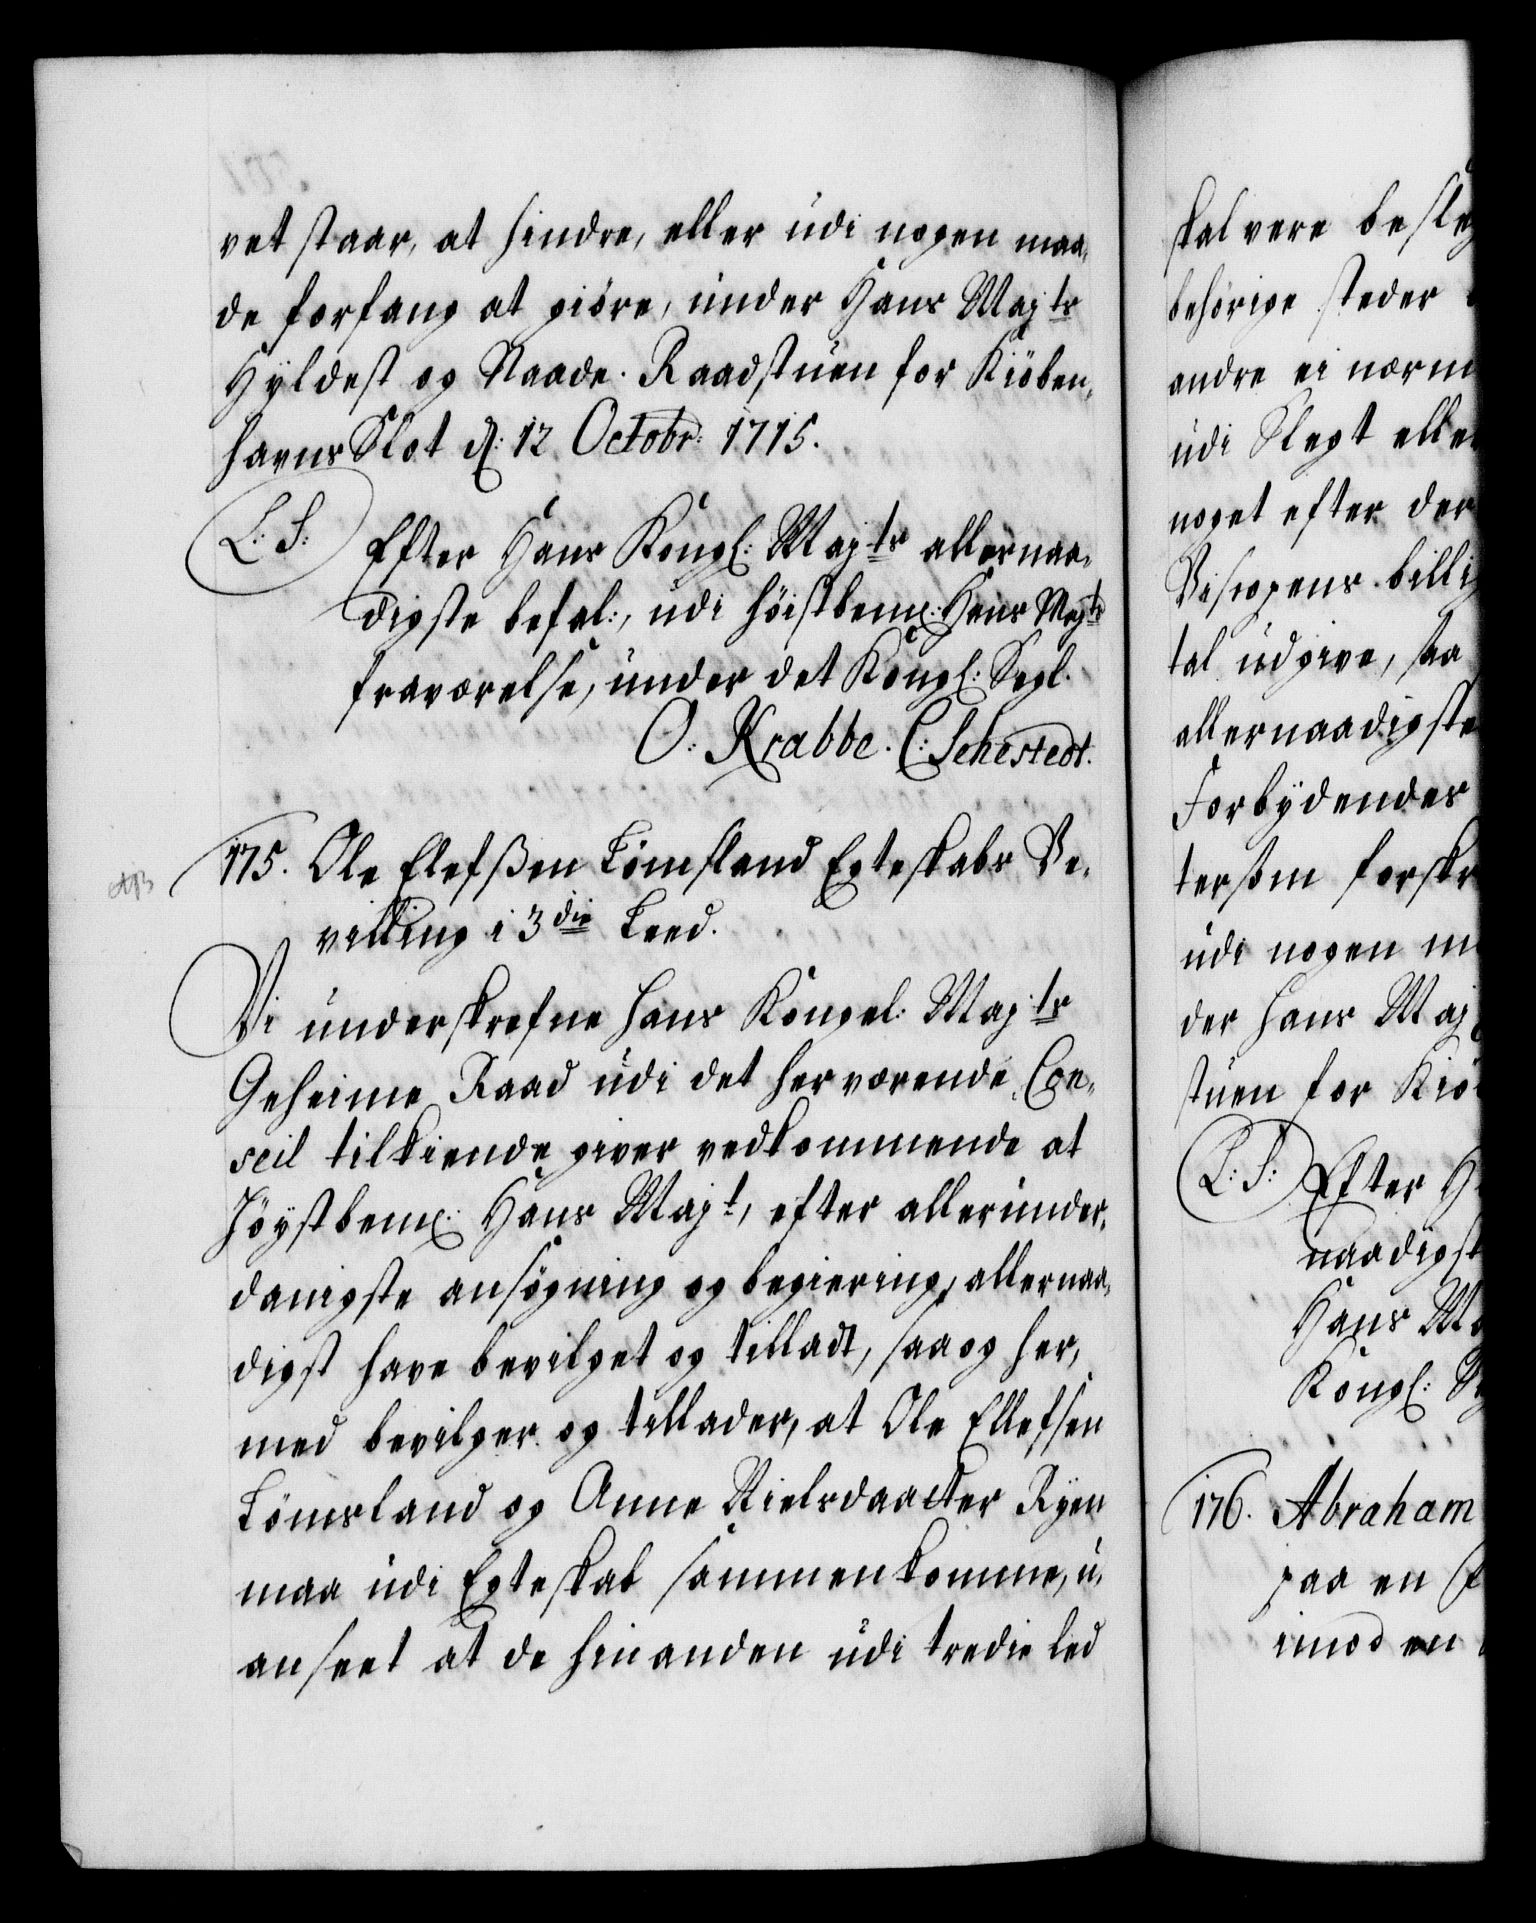 vet staar, at hindre, eller udi nogen maa,
de forfang at giöre, under Hans Maj:ts
Hyldest og Naade. Raadstuen for Kiöben,
havns Slot d: 12 Octobr: 1715.
L: S: Efter Hans Kongl: Maj:ts allernaa,
digste befal:, udi höistbem: Hans Maj:ts
fraværelse, under det Kongl: Segl.
O: Krabbe. C: Sehestedt.
175. Ole Elefßen Lömsland Egteskabs Be,
villing i 3die Leed.
Vi underskrefne Hans Kongel: Maj:ts
Geheime Raad udi det herværende Con,
seil tilkiende giver vedkommende at
Höystbem: Hans Maj:t, efter allerunder,
danigste ansögning og begiering, allernaa,
digst have bevilget og tilladt, saa og her,
med bevilger og tillader, at Ole Ellefsen
Lömsland og Anne Nielsdaatter Ryen
maa udi Egteskab sammenkomme, u,
anseet at de hinanden udi tredie led
skal vere besleg
behörige steder
andre ei nærm
udi Slegt elle
noget efter der
Visopens billi
tal udgive, saa
allernaadigste
Forbydendes
tersom forskr
udi nogen m
der Hans Maj
stuen for Kiö
L: S: Efter H
naadigst
Hans Ma
Kongl: S
176. Abraham
paa en
imod en